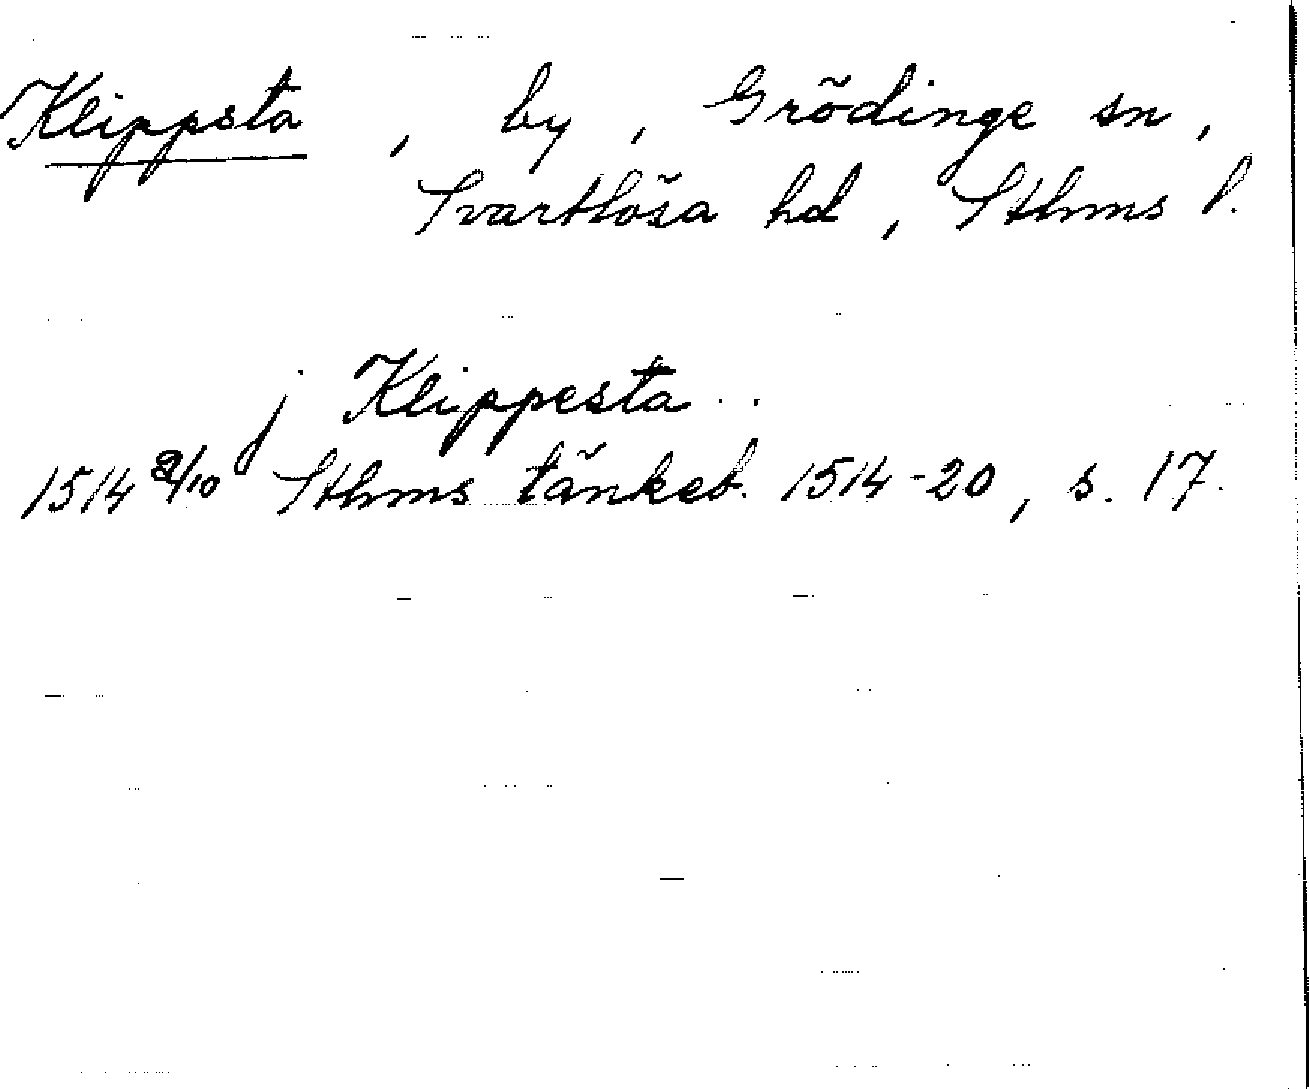 Klippsta, by, Grödinge sn,
Svartlösa hd, Sthms l.
j Klippesta
1514 2/10 Sthms tänkeb. 1514-20, s. 17.